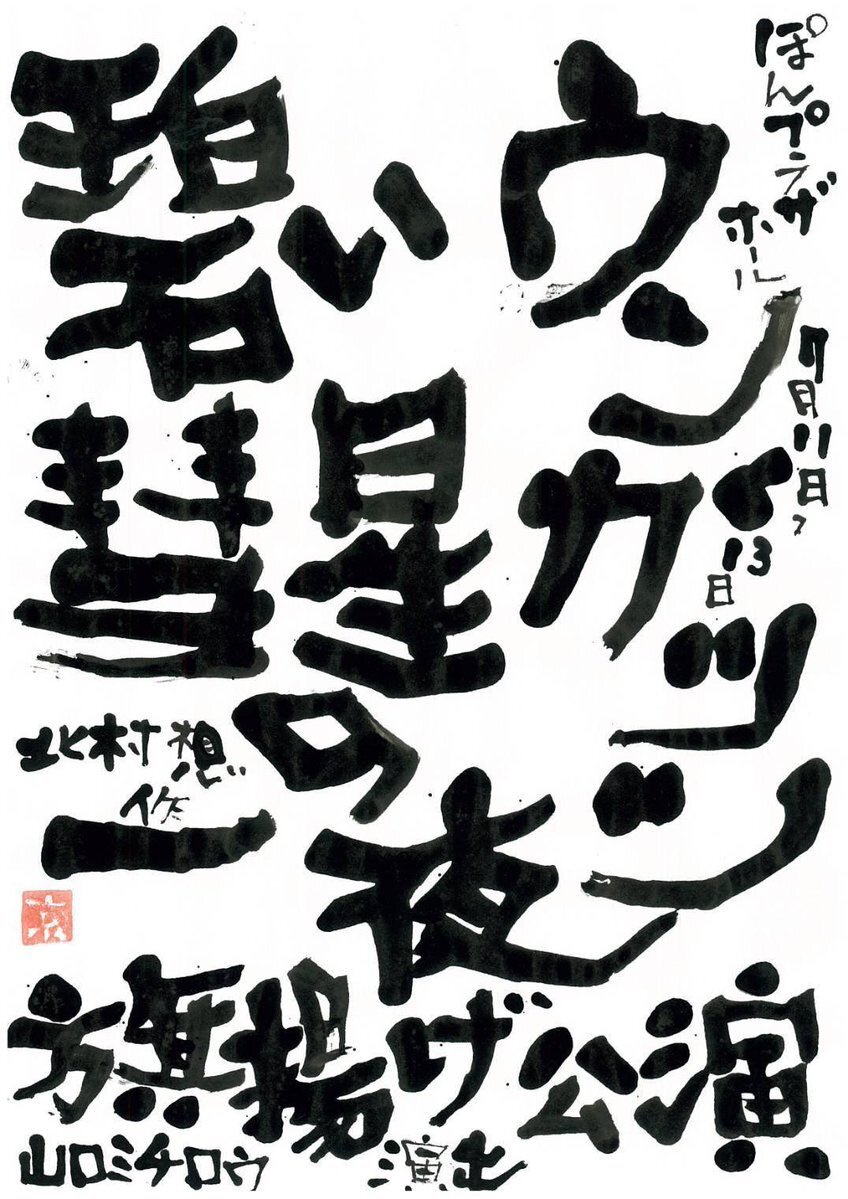 ぽんプラザ
ホール
7月11日〜
13日
碧い
彗星の
一夜
北村想
作
旗揚げ公演
山口ミチロウ 演出